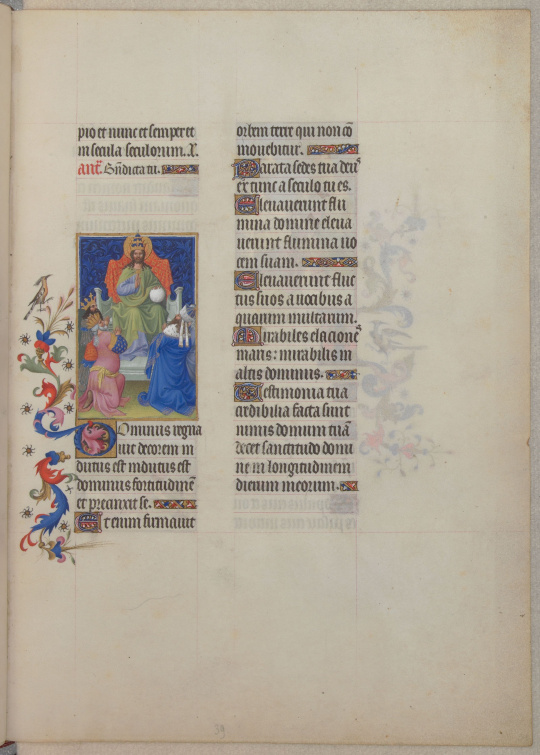 pio et nunc et semper et
in secula seculorum. A.
ant̃. Bñdicta tu.
Dominus regna
uit decorem in
dutus est indutus est
dominus fortitudinẽ
et precinxit se.
Etenim firmauit
orbem terre qui non cõ
mouebitur.
Parata sedes tua deus
ex tunc a seculo tu es.
Eleuauerunt flu
mina domine eleua
uerunt flumina uo
cem suam.
Eleuauerunt fluc
tus suos a uocibus a
quarum multarum.
Mirabiles elacionẽs
maris: mirabilis in
altis dominus.
Testimonia tua
credibilia facta sunt
nimis domum tuã
decet sanctitudo domi
ne in longitudinem
dierum meorum.